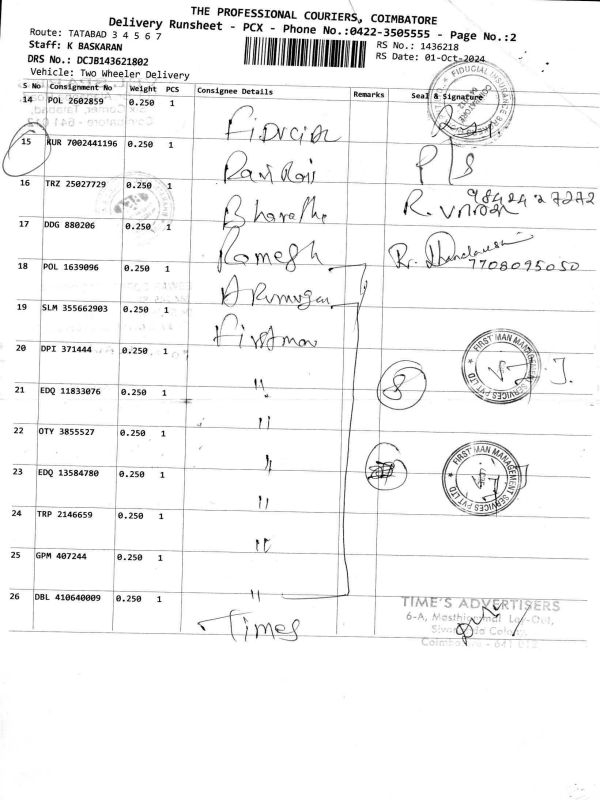 THE PROFESSIONAL COURIERS, COIMBATORE
Delivery Runsheet - PCX - Phone No.:0422-3505555 - Page No.:2
Route: TATABAD 3 4 5 6 7
RS No.: 1436218
Staff: K BASKARAN
RS Date: 01-Oct-2024
DRS No.: DCJB143621802
Vehicle: Two Wheeler Delivery
S No Consignment No Weight PCS Consignee Details Remarks Seal & Signature
14 POL 2602859 0.250 1
FIDUCIAL INSURANCE
COIMBATORE
15 KUR 7002441196 0.250 1
16 TRZ 25027729 0.250 1 Bharathi
17 DDG 880206 0.250 1 Ramesh
7708095050
18 POL 1639096 0.250 1
19 SLM 355662903 0.250 1 First man
20 DPI 371444 0.250 1 "
FIRST MAN MANAGEMENT SERVICES PVT LTD
V.J.
21 EDQ 11833076 0.250 1 " 8
22 OTY 3855527 0.250 1 "
23 EDQ 13584780 0.250 1 "
FIRST MAN MANAGEMENT SERVICES PVT LTD
24 TRP 2146659 0.250 1 "
25 GPM 407244 0.250 1 "
26 DBL 410640009 0.250 1 Times
TIME'S ADVERTISERS
6-A, Lay-Out,
Coimbatore - 641 012